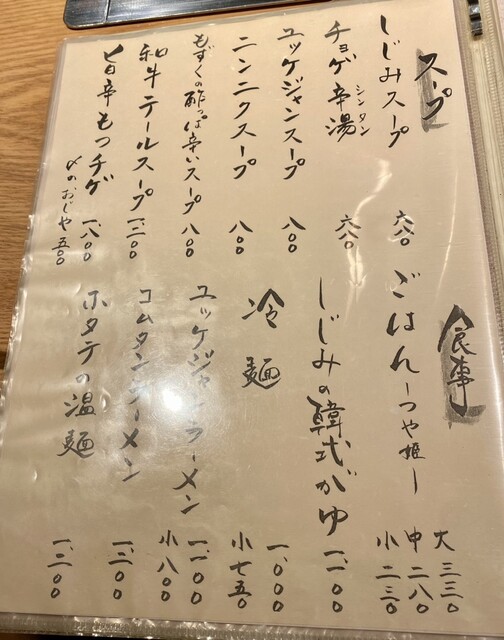 スープ
しじみスープ 六八〇
チョゲ辛湯 六八〇
シンタン
ユッケジャンスープ 八〇〇
ニンニクスープ 八〇〇
もずくの酢っぱ辛いスープ 八〇〇
和牛テールスープ 一、二〇〇
旨辛もつチゲ 一、八〇〇
〆のおじや 五〇〇
食事
ごはん―つや姫― 大 三三〇
中 二八〇
小 二三〇
しじみの韓式がゆ 一、一〇〇
冷麺 一、〇〇〇
小 七五〇
ユッケジャンラーメン 一、一〇〇
小 八〇〇
コムタンラーメン 一、三〇〇
ホタテの温麺 一、三〇〇